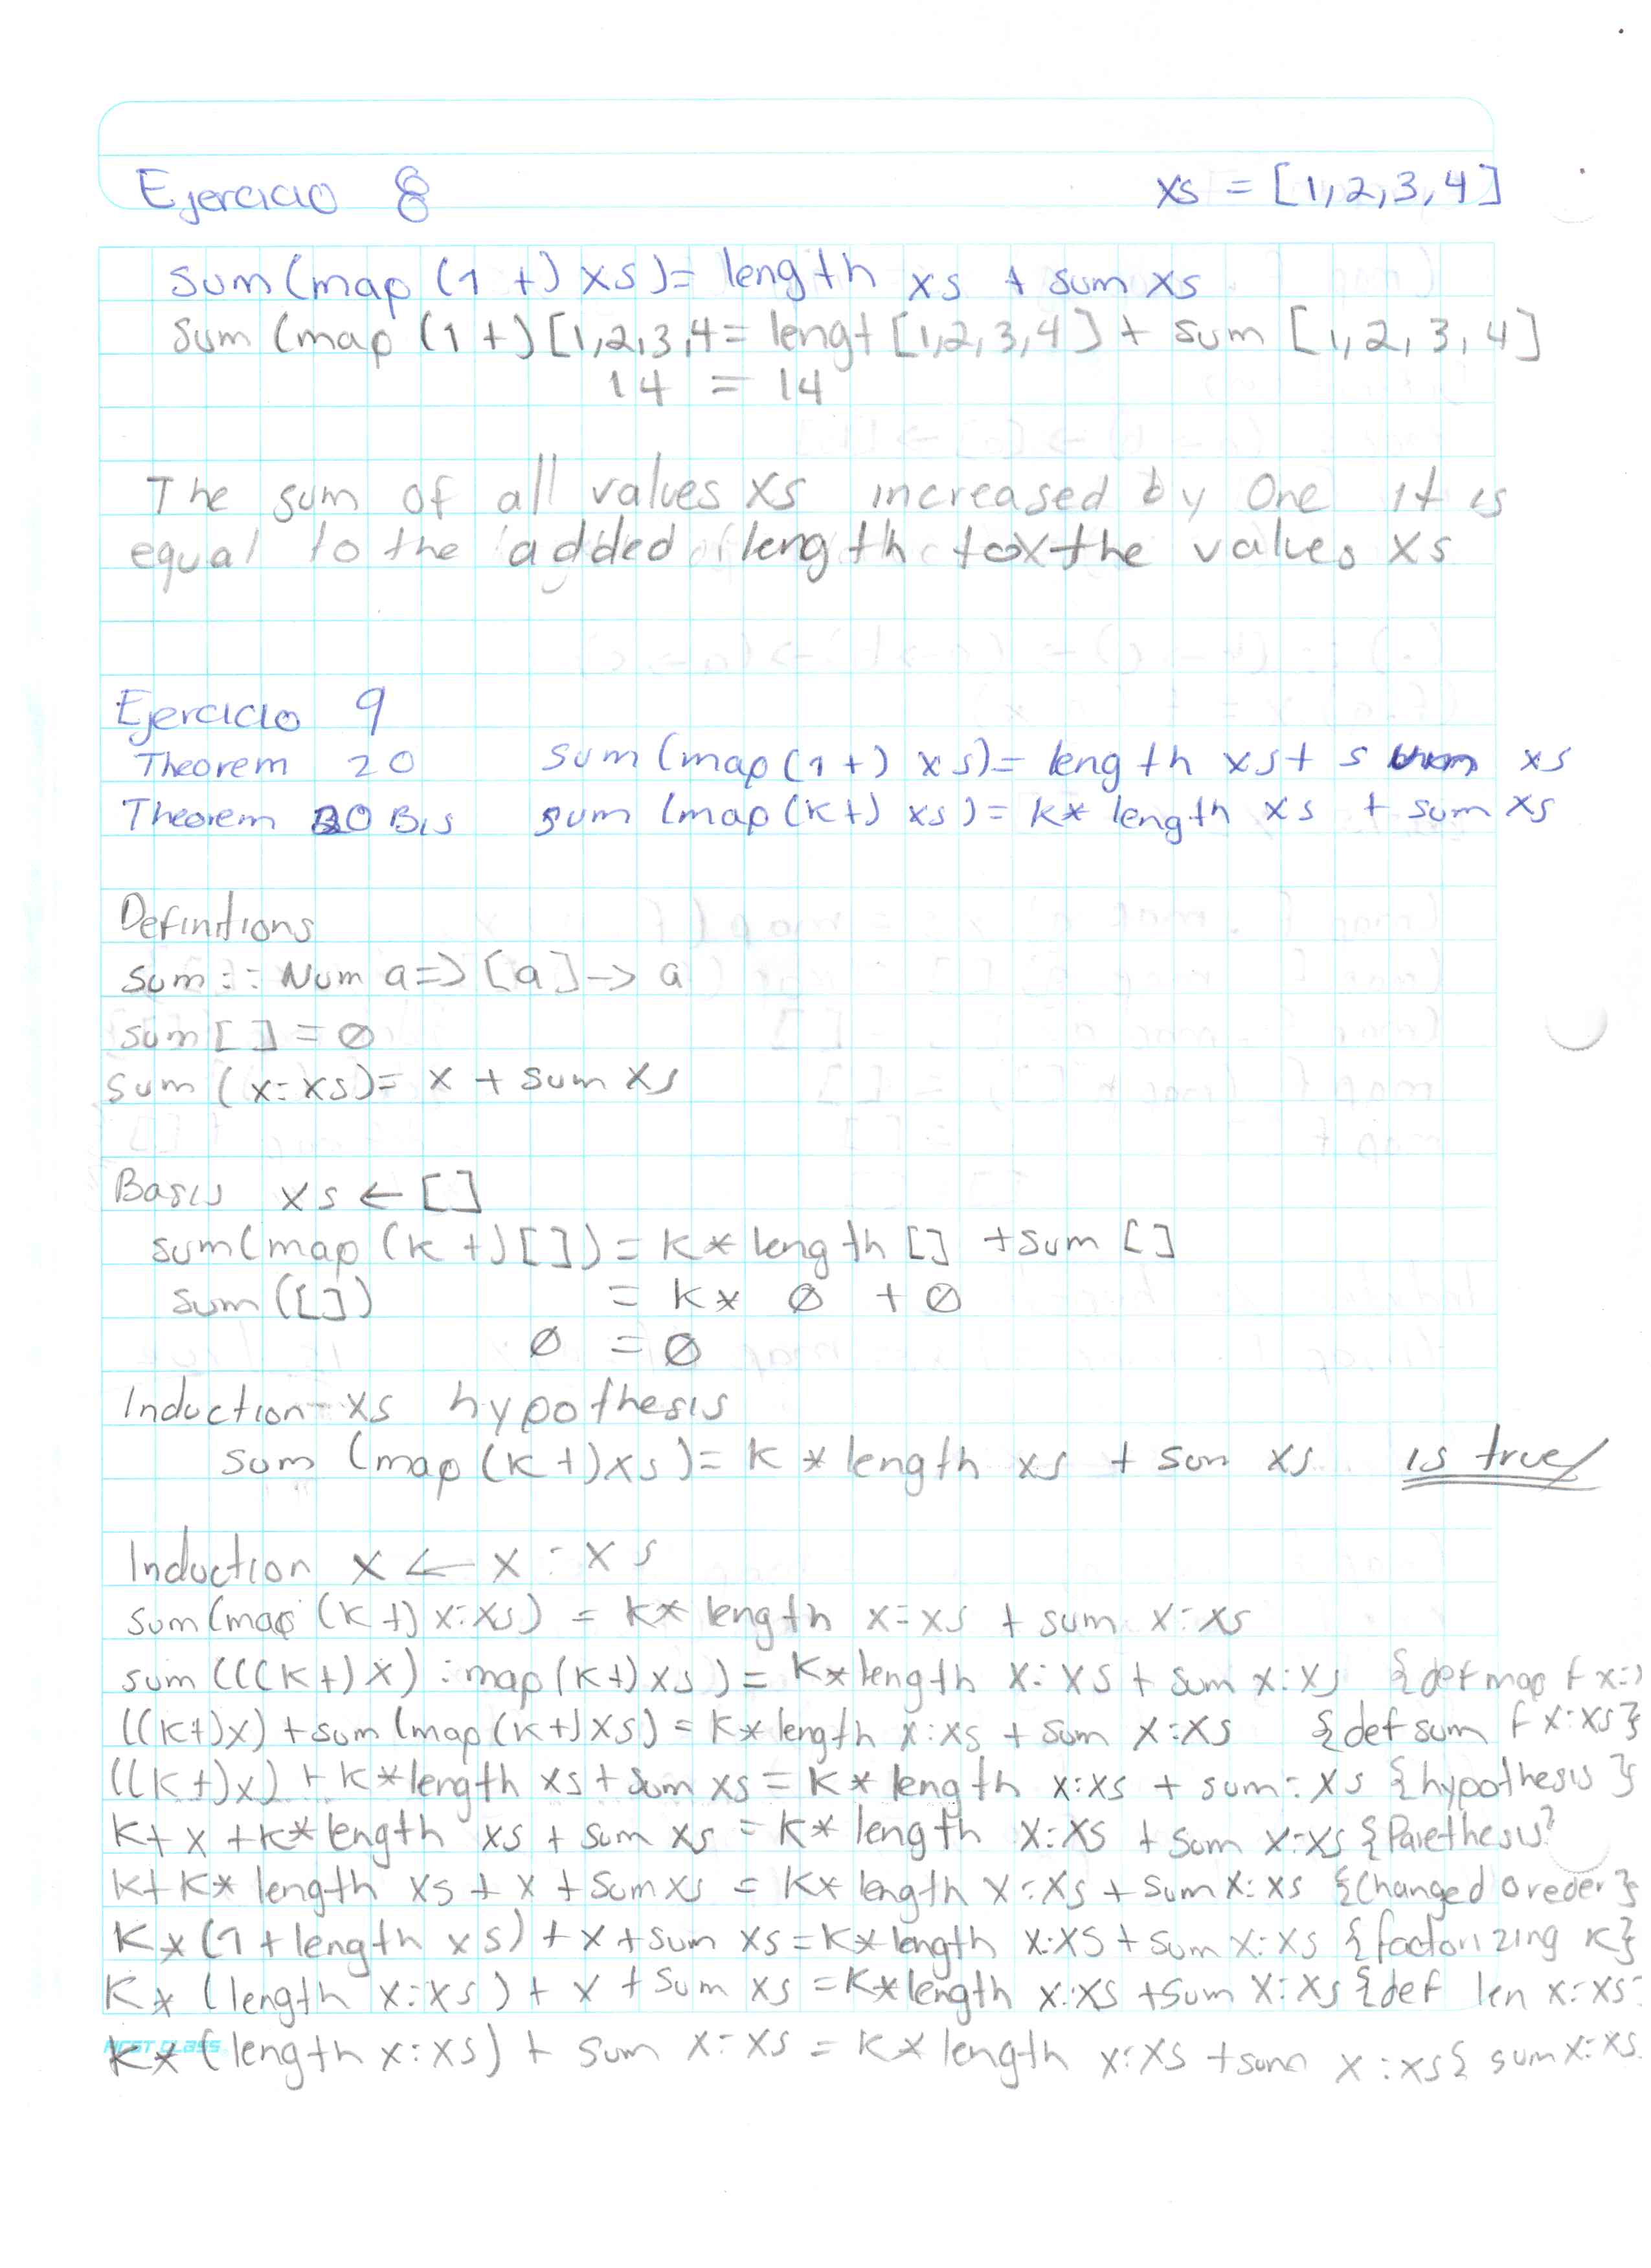 Ejercicio 8 xs = [1,2,3,4]
sum(map (1 +) xs)= length xs + sum xs
sum (map (1 +) [1,2,3,4= lengt [1,2,3,4] + sum [1,2,3,4]
14 = 14
The sum of all values xs increased by One it is
equal to the added length to the values xs
Ejercicio 9
Theorem 20 sum (map (1+) xs)= length xs + sum xs
Theorem 20 Bis sum (map (k+) xs)= k* length xs + sum xs
Definitions
sum:: Num a=> [a]-> a
sum [ ] = 0
sum (x:xs)= x + sum xs
Basis xs ← []
sum(map (k +) [])= k* length [] + sum []
sum ([]) = k* 0 + 0
0 = 0
Induction xs hypothesis
sum (map (k+)xs)= k * length xs + sum xs is true
Induction x ← x : xs
sum(map (k+) x:xs) = k* length x:xs + sum x:xs
sum (((k+)x) : map(k+) xs)= k*length x:xs + sum x:xs {def map f x:
((k+)x) + sum (map(k+)xs) = k*length x:xs + sum x:xs {def sum f x:xs}
((k+)x) + k*length xs + sum xs = k* length x:xs + sum: xs {hypothesis}
k+ x + k* length xs + sum xs = k* length x:xs + sum x:xs {Parethesis}
k+k* length xs + x + sum xs = k* length x:xs + sum x:xs {Changed oreder}
k*(1+length xs) + x + sum xs=k* length x:xs + sum x:xs {factorizing k}
k* (length x:xs) + x + sum xs = k*length x:xs + sum x:xs {def len x:xs
k* (length x:xs) + sum x:xs = k* length x:xs + sum x:xs{ sum x:xs